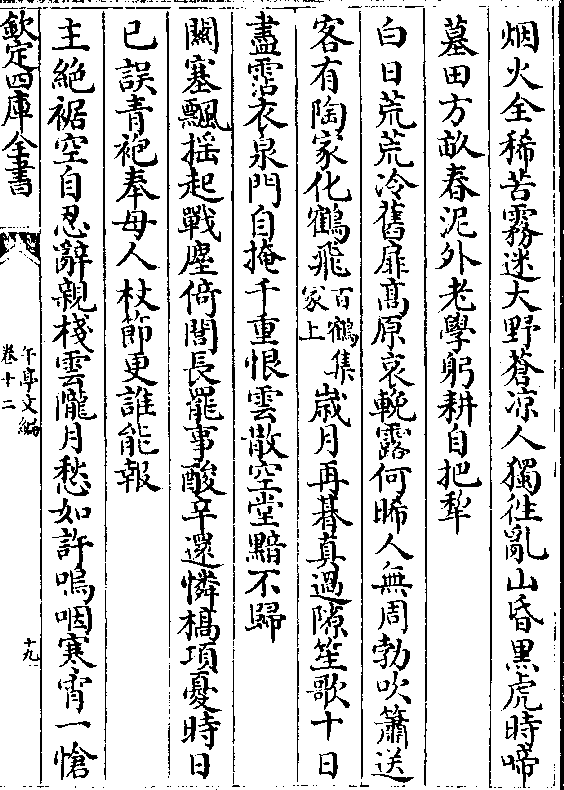 烟火全稀苦霧迷大野蒼凉人獨徃亂山昏黒虎時啼
墓田方畝春泥外老學躬耕自把犂
白日荒荒冷舊扉髙原哀輓露何晞人無周勃吹簫送
客有陶家化鶴飛百鶴集冢上歳月再朞真過隙笙歌十日
盡霑衣泉門自掩千重恨雲散空堂黯不歸
闗塞飄揺起戰塵倚閭長罷事酸辛還憐槁項憂時日
已誤青袍奉母人杖節更誰能報
主絶裾空自忍辭親棧雲隴月愁如許嗚咽寒宵一愴
欽定四庫全書
午亭文編
卷十二
十九